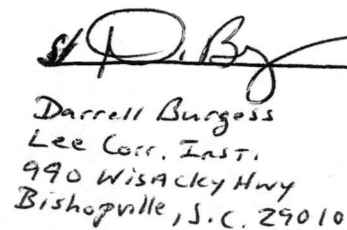 s/ D. B
Darrell Burgess
Lee Corr. Inst.
990 Wisacky Hwy
Bishopville, S.C. 29010